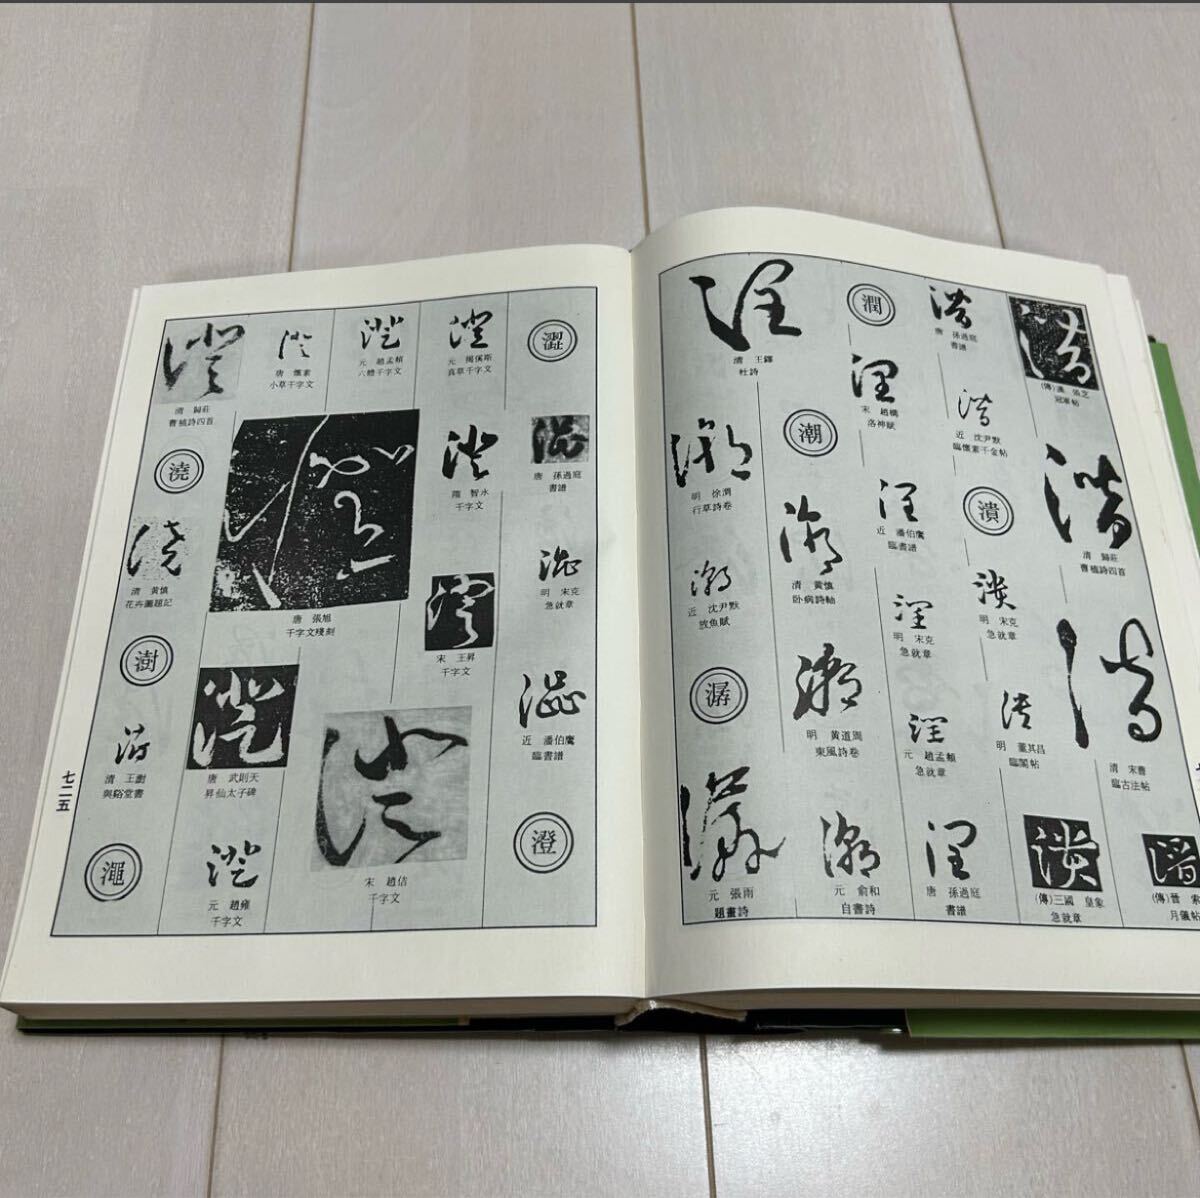 (傳)漢 張芝
冠軍帖
清 歸莊
曹植詩四首
清 宋曹
臨古法帖
(傳)晉 索
月儀帖
唐 孫過庭
書譜
近 沈尹默
臨懷素千金帖
潰
明 宋克
急就章
明 董其昌
臨閣帖
(傳)三國 皇象
急就章
潤
宋 趙構
洛神賦
近 潘伯鷹
臨書譜
明 宋克
急就章
元 趙孟頫
急就章
唐 孫過庭
書譜
清 王鐸
杜詩
潮
清 黃慎
卧病詩軸
明 黃道周
東風詩卷
元 俞和
自書詩
明 徐渭
行草詩卷
近 沈尹默
放魚賦
潺
元 張雨
題畫詩
澀
唐 孫過庭
書譜
明 宋克
急就章
近 潘伯鷹
臨書譜
澄
元 揭傒斯
真草千字文
隋 智永
千字文
宋 王昇
千字文
宋 趙佶
千字文
元 趙孟頫
六體千字文
唐 懷素
小草千字文
唐 張旭
千字文殘刻
唐 武則天
昇仙太子碑
元 趙雍
千字文
清 歸莊
曹植詩四首
澆
清 黃慎
花卉圖題記
澍
清 王澍
與谿堂書
澠
七二五